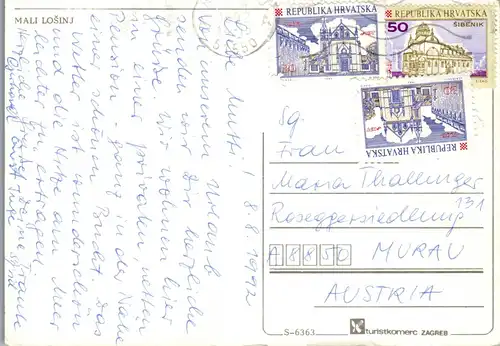 MALI LOŠINJ
REPUBLIKA HRVATSKA
REPUBLIKA HRVATSKA
50
ŠIBENIK
REPUBLIKA HRVATSKA
8.8.1992
Liebe Mutti!
Von unserem Urlaub
senden wir Dir herzliche
Grüße. Wir wohnen hier
in einer privaten, netten
Pension ganz in der Nähe
Das
Wetter ist wunderschön
und die Hitze am Meer
zu ertragen.
Sg.
Frau
Maria Thallinger
Roseggersiedlung 131
A 8850 MURAU
AUSTRIA
S-6363
turistkomerc ZAGREB